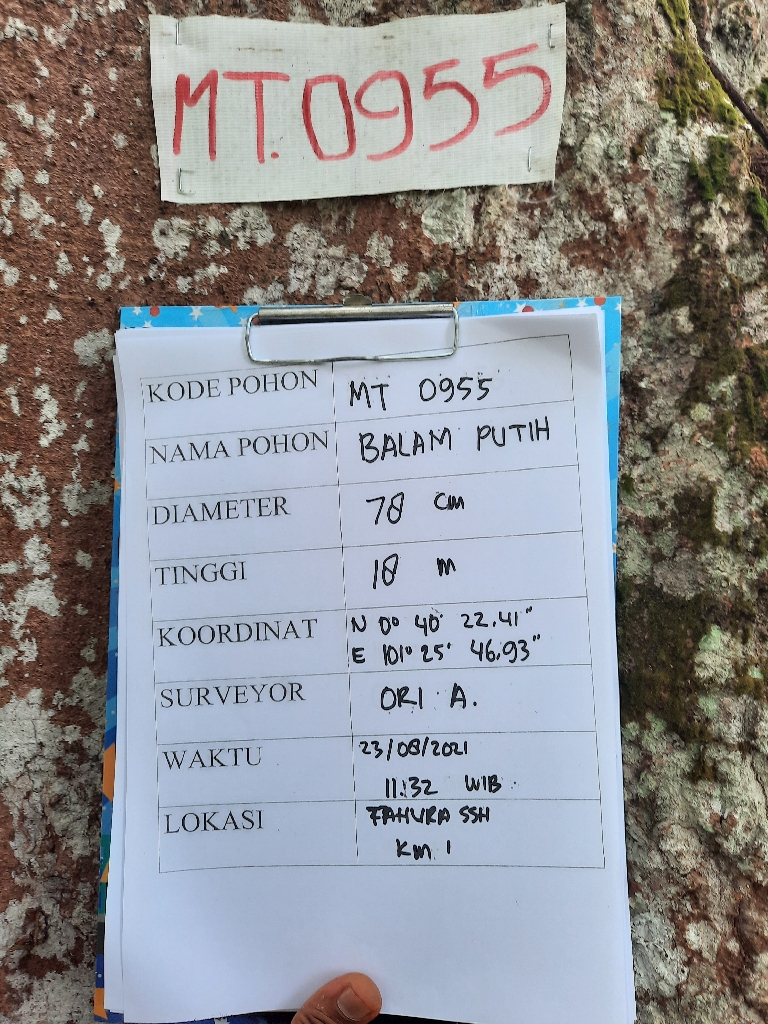 MT.0955
KODE POHON MT 0955
NAMA POHON BALAM PUTIH
DIAMETER 78 cm
TINGGI 18 m
KOORDINAT N 0° 40' 22.41"
E 101° 25' 46.93"
SURVEYOR ORI A.
WAKTU 23/08/2021
11:32 WIB
LOKASI TAHURA SSH
Km 1